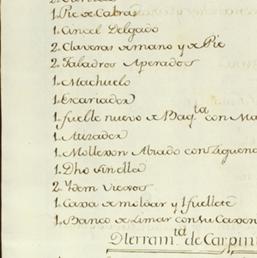 1. Pie de Cabras
1. Cincel Delgado
2. Claveras de mano y de Pie
2. Taladros Aperados
1. Machuelo
1. Escariador
1. fuelle nuevo de Baqta con
1. Atizador
1. Mollexon Abiado con
1. Dho sin ella
2. Ydem viexos
1. Caxa de moldar y 1 fuellete
1. Banco de Limar con su
Dterramtd de Carpin